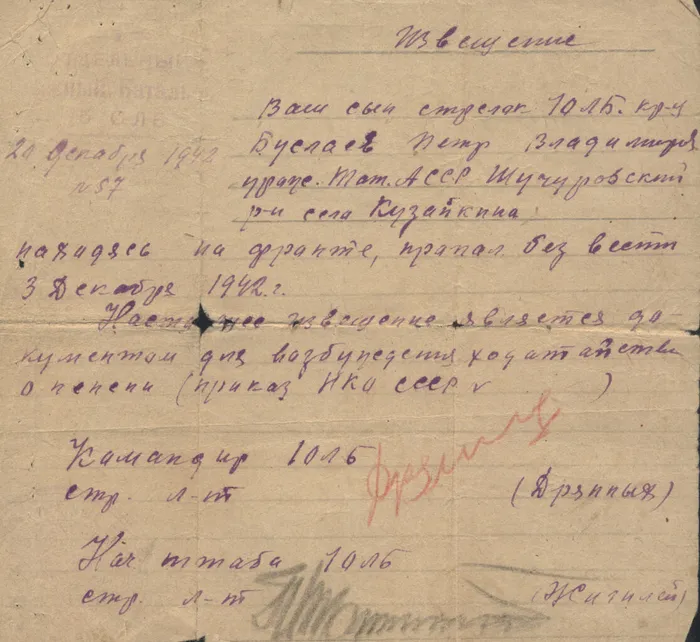 Извещение
Ваш сын стрелак 10 ЛБ. кр-ц
20 Декабря 1942
Буслаев Петр Владимиров
№57
урож. Тат. АССР Шучуровский
р-н села Кузайкина,
находясь на франте, прапал без вести
3 Декабря 1942 г.
Настоящее извещение является да-
кументам для возбуждения ходатайства
о пенсии (приказ НКО СССР № )
Камандир 10 ЛБ
стр. л-т (Дрянных)
Нач штаба 10 ЛБ
стр. л-т (Жигилей)